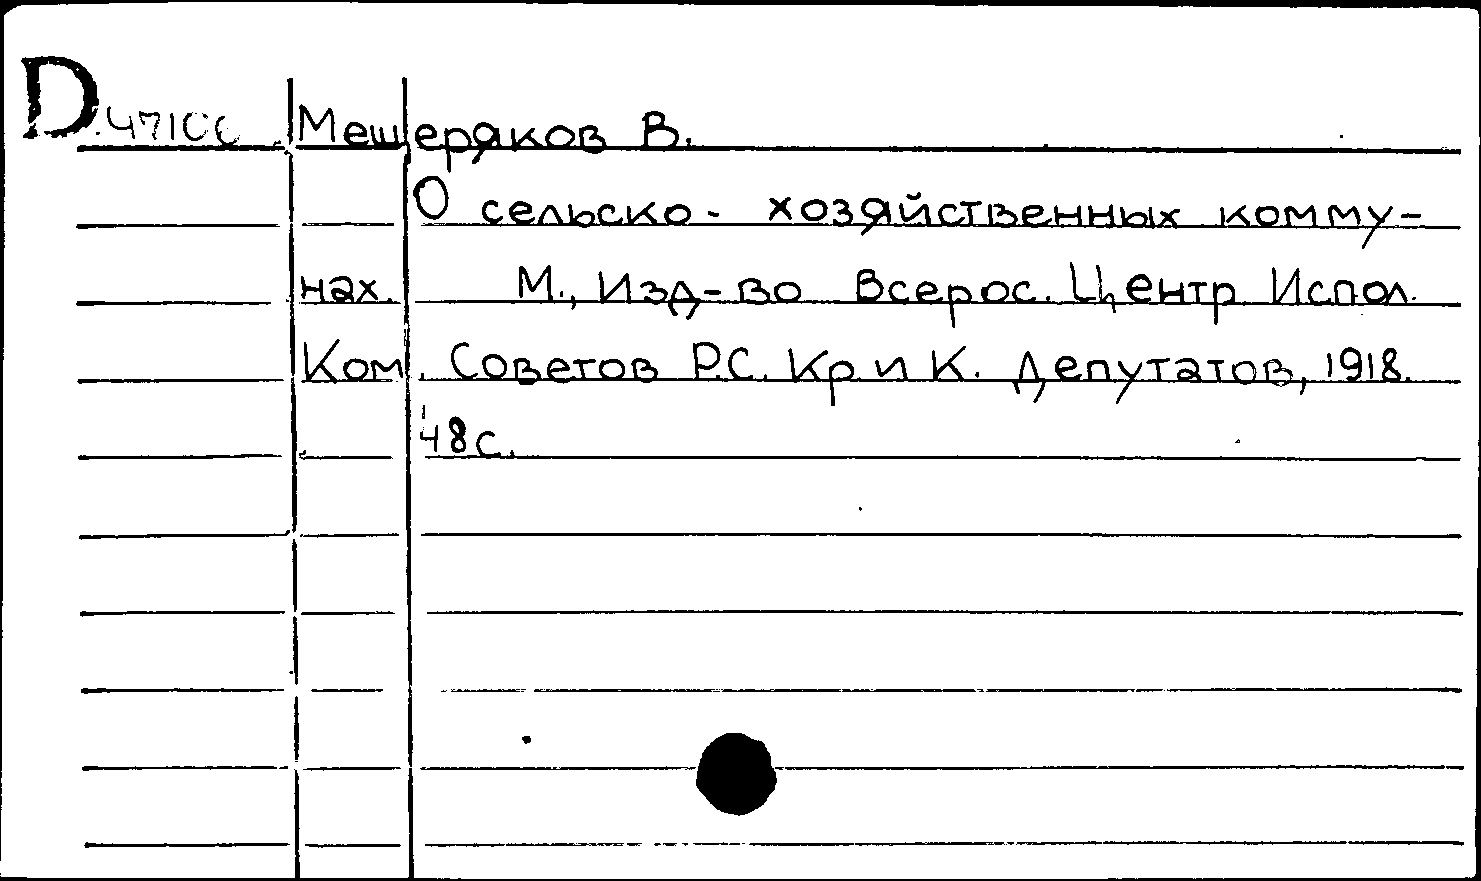 D Мещеряков В.
О сельско- хозяйственных комму-
нах. М., Изд-во Всерос. Центр Испол.
Ком. Советов Р.С. Кр. и К. Депутатов, 1918.
48 с.